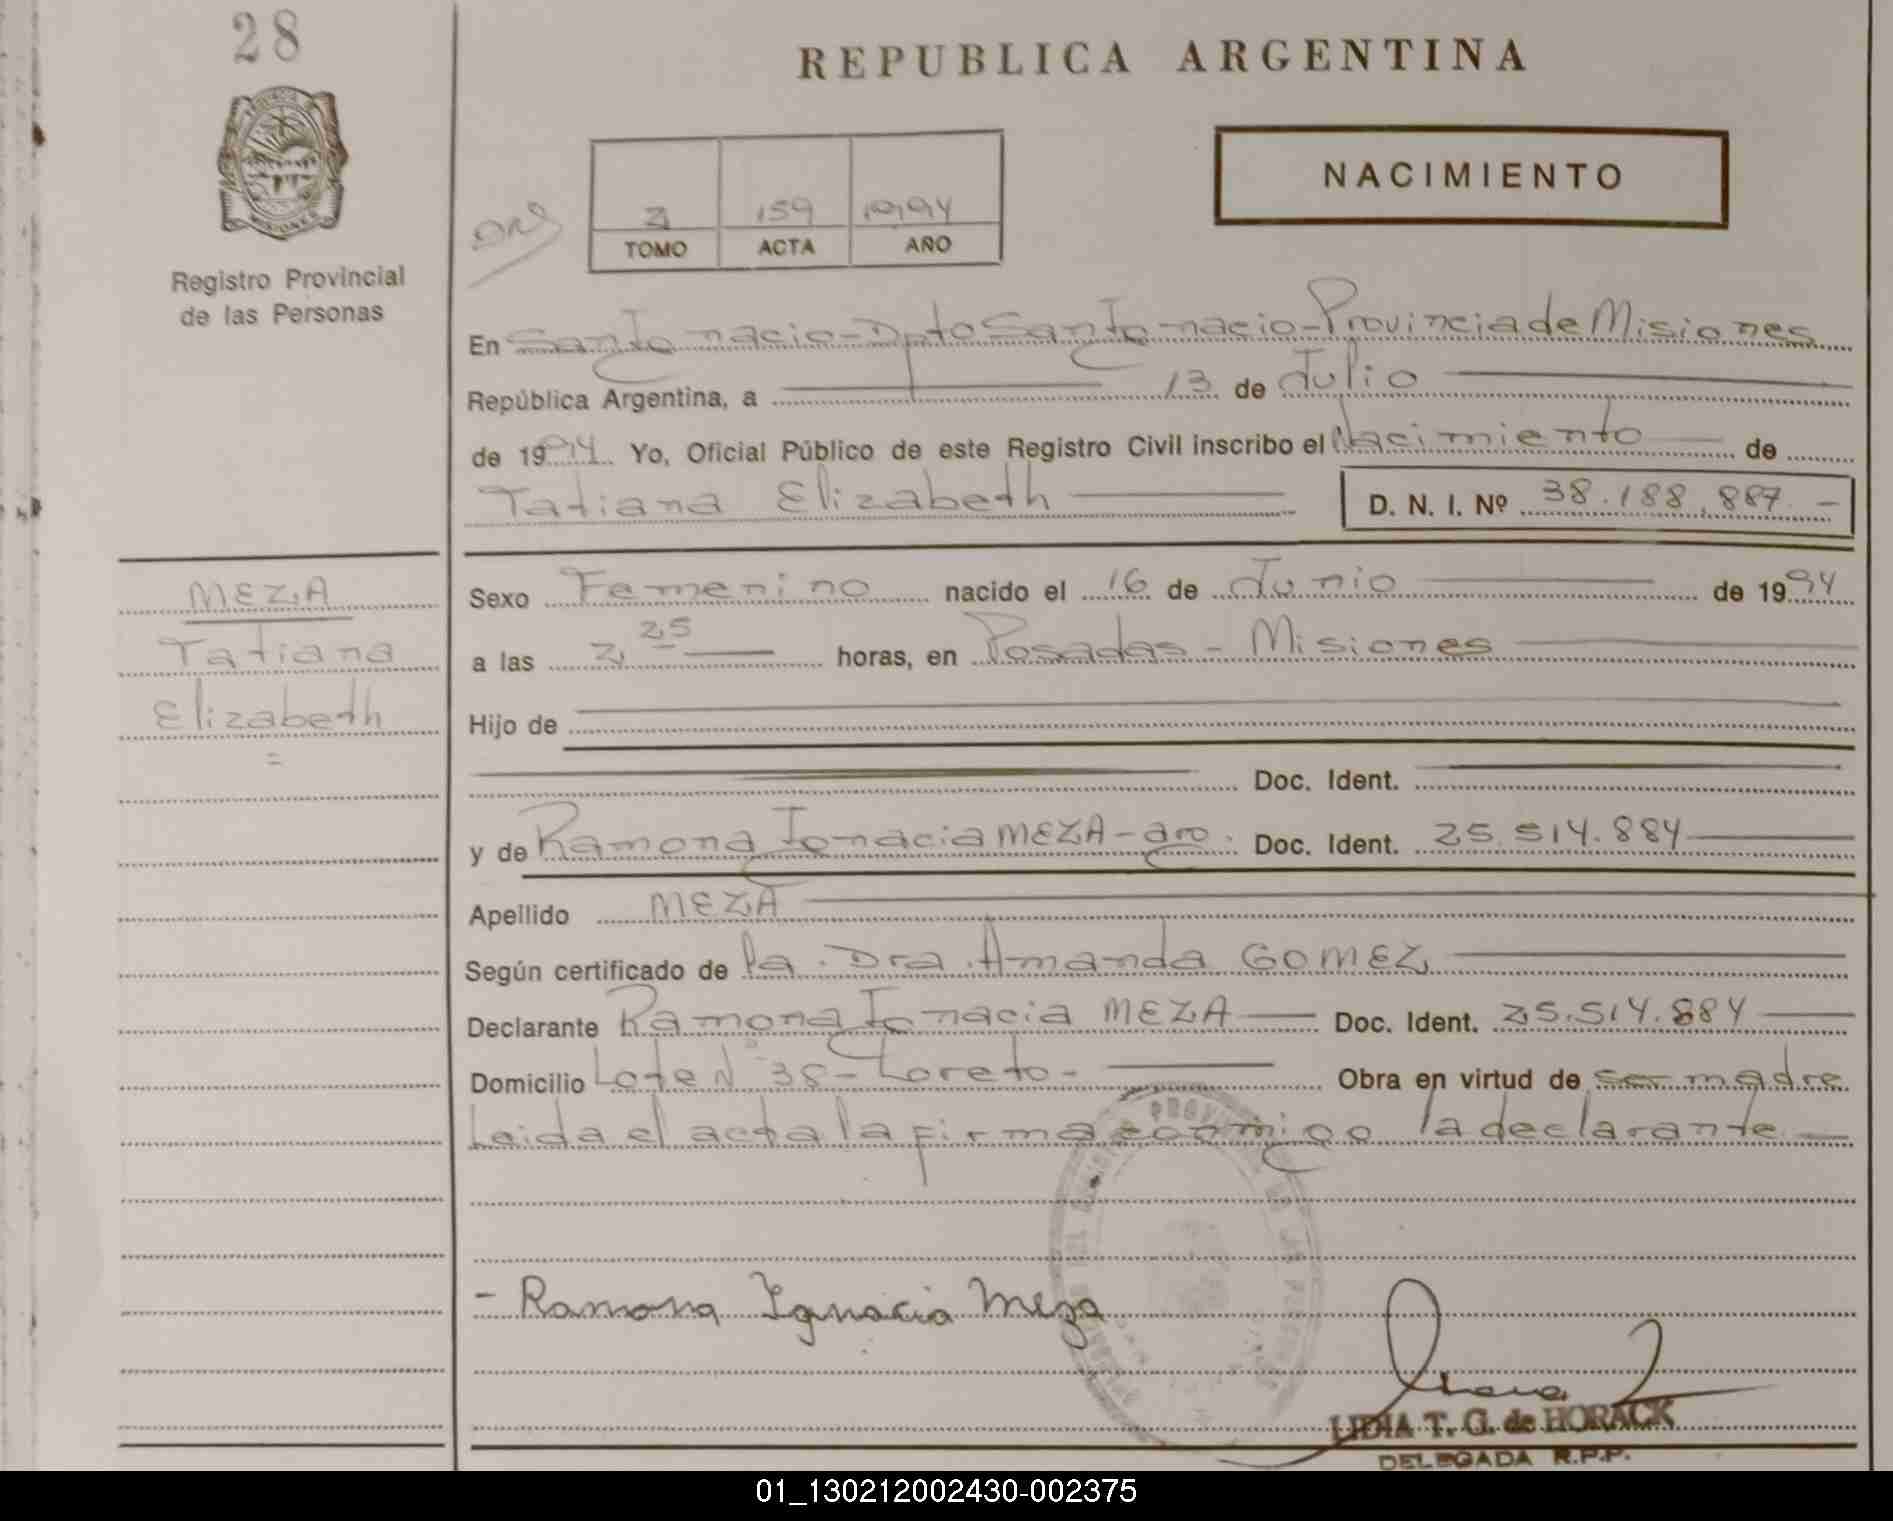 28
REPUBLICA ARGENTINA
NACIMIENTO
2 159 1994
TOMO ACTA AÑO
Registro Provincial
de las Personas
En San Ignacio - Dpto San Ignacio - Provincia de Misiones
República Argentina, a 13 de Julio
de 1994 Yo, Oficial Público de este Registro Civil inscribo el Nacimiento de
Tatiana Elizabeth D. N. I. Nº 38.188.887.-
MEZA
Tatiana
Elizabeth
=
Sexo Femenino nacido el 16 de Junio de 1994
a las 2,25 horas, en Posadas - Misiones
Hijo de
Doc. Ident.
y de Ramona Ignacia MEZA - arg. Doc. Ident. 25.514.884
Apellido MEZA
Según certificado de la Dra. Amanda GOMEZ
Declarante Ramona Ignacia MEZA Doc. Ident. 25.514.884
Domicilio Lote Nº 38 - Loreto - Obra en virtud de ser madre
Leida el acta la firma conmigo la declarante
- Ramona Ignacia Meza
LIDIA T. G. de HORACK
DELEGADA R.P.P.
01_130212002430-002375